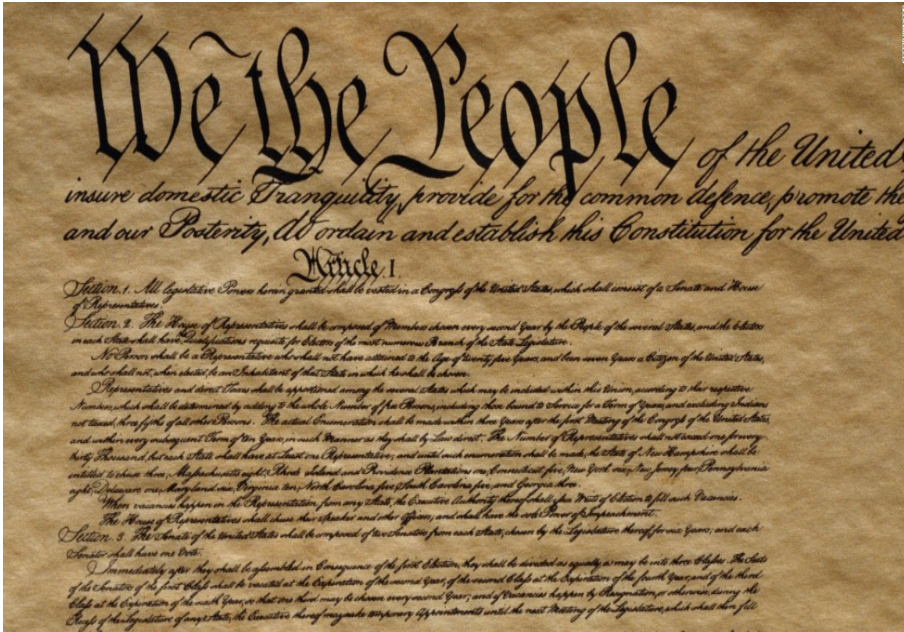 We the People of the United
insure domestic Tranquility, provide for the common defence, promote the
and our Posterity, do ordain and establish this Constitution for the United
Article. I.
Section. 1. All legislative Powers herein granted shall be vested in a Congress of the United States, which shall consist of a Senate and House
of Representatives.
Section. 2. The House of Representatives shall be composed of Members chosen every second Year by the People of the several States, and the Electors
in each State shall have Qualifications requisite for Electors of the most numerous Branch of the State Legislature.
No Person shall be a Representative who shall not have attained to the Age of twenty five Years, and been seven Years a Citizen of the United States,
and who shall not, when elected, be an Inhabitant of that State in which he shall be chosen.
Representatives and direct Taxes shall be apportioned among the several States which may be included within this Union, according to their respective
Numbers, which shall be determined by adding to the whole Number of free Persons, including those bound to Service for a Term of Years, and excluding Indians
not taxed, three fifths of all other Persons. The actual Enumeration shall be made within three Years after the first Meeting of the Congress of the United States,
and within every subsequent Term of ten Years, in such Manner as they shall by Law direct. The Number of Representatives shall not exceed one for every
thirty Thousand, but each State shall have at Least one Representative; and until such enumeration shall be made, the State of New Hampshire shall be
entitled to chuse three, Massachusetts eight, Rhode Island and Providence Plantations one, Connecticut five, New York six, New Jersey four, Pennsylvania
eight, Delaware one, Maryland six, Virginia ten, North Carolina five, South Carolina five, and Georgia three.
When vacancies happen in the Representation from any State, the Executive Authority thereof shall issue Writs of Election to fill such Vacancies.
The House of Representatives shall chuse their Speaker and other Officers; and shall have the sole Power of Impeachment.
Section. 3. The Senate of the United States shall be composed of two Senators from each State, chosen by the Legislature thereof, for six Years; and each
Senator shall have one Vote.
Immediately after they shall be assembled in Consequence of the first Election, they shall be divided as equally as may be into three Classes. The Seats
of the Senators of the first Class shall be vacated at the Expiration of the second Year, of the second Class at the Expiration of the fourth Year, and of the third
Class at the Expiration of the sixth Year, so that one third may be chosen every second Year; and if Vacancies happen by Resignation, or otherwise, during the
Recess of the Legislature of any State, the Executive thereof may make temporary Appointments until the next Meeting of the Legislature, which shall then fill